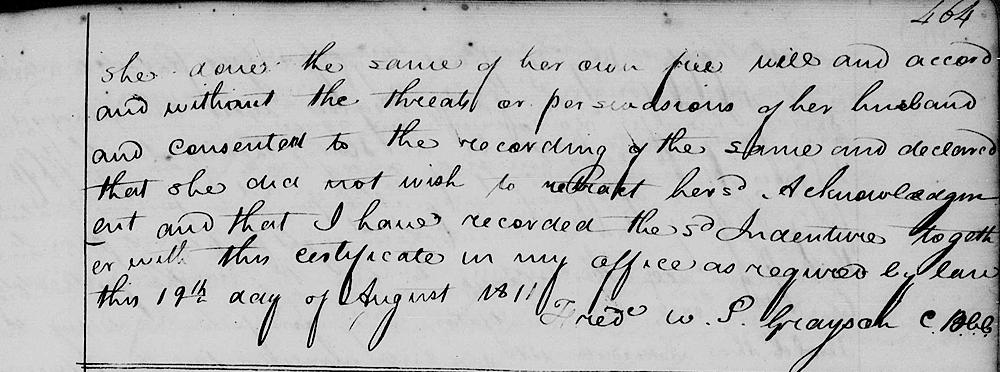 464
she done the same of her own free will and accord
and without the threats or perswasions of her husband
and consented to the recording of the same and declared
that she did not wish to retract her sd Acknowledgm
ent and that I have recorded the sd Indenture togeth
er with this certificate in my office as required by law
this 19th day of August 1811
Fredc W. S. Grayson C.B.C.C.